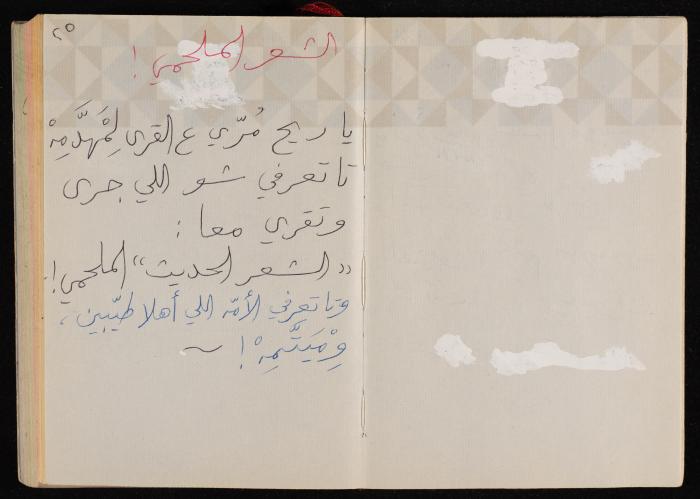 ٢٥
الشعر الملحمي!
يا ريح مُرّي ع القرى لِمْهَدَّمِهْ
تا تعرفي شو اللي جرى
وتقري معا:
«الشعر الحديث" الملحمي!
وتا تعرفي الأمّه اللي أهلا طيّبين،
وِمْيَتَّمِهْ! ~